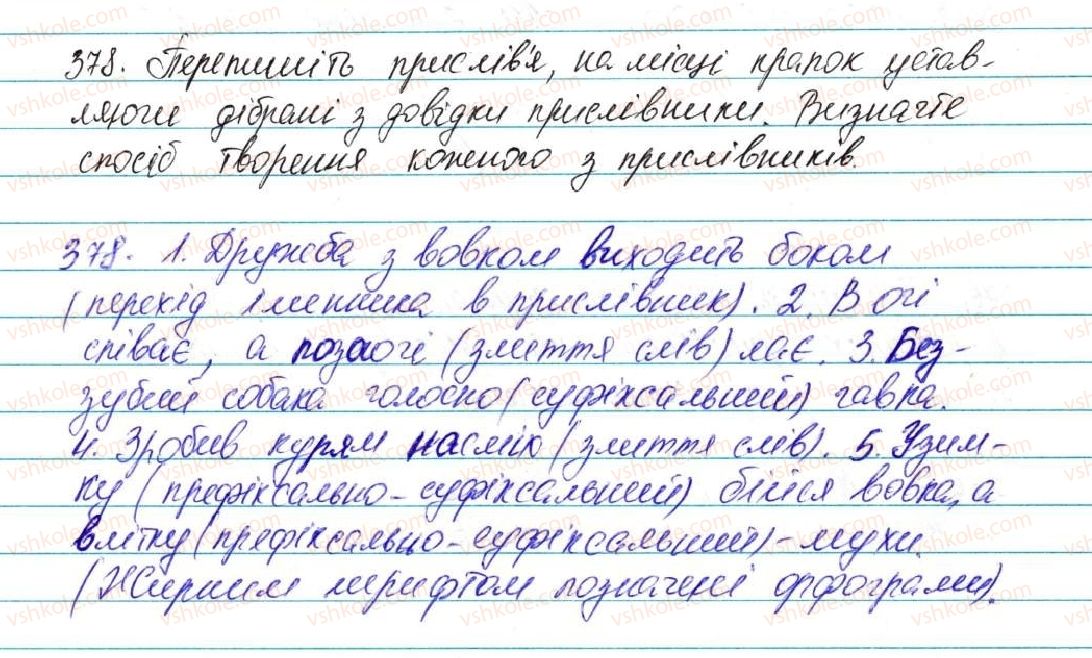 378. Перепишіть прислів'я, на місці крапок устав-
ляючи дібрані з довідки прислівники. Визначте
спосіб творення кожного з прислівників.
378. 1. Дружба з вовком виходить боком
(перехід іменника в прислівник). 2. В очі
співає, а позаочі (злиття слів) лає. 3. Без-
зубий собака голосно (суфіксальний) гавка.
4. Зробив курям насміх (злиття слів). 5. Узим-
ку (префіксально-суфіксальний) бійся вовка, а
влітку (префіксально-суфіксальний) - мухи.
(Жирним шрифтом позначені орфограми).